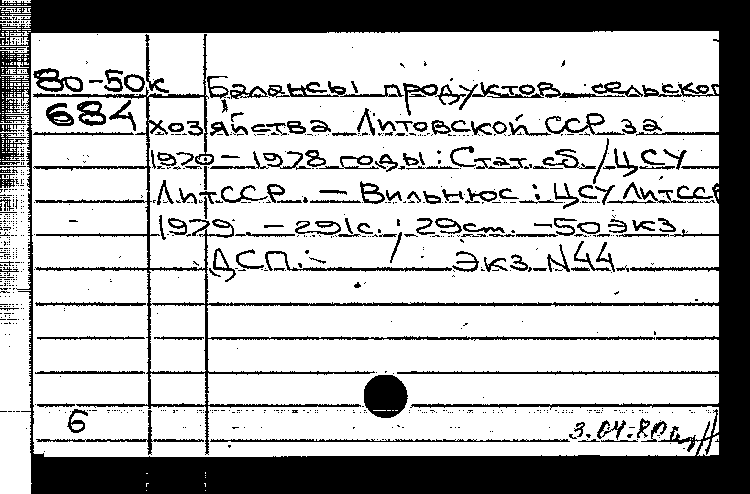 80-50к Балансы продуктов сельског
684 хозяйства Литовской ССР за
1970-1978 годы: Стат. сб. / ЦСУ
ЛитССР. - Вильнюс: ЦСУ ЛитССР
1979. - 291с.; 29см. -50экз.
ДСП.- Экз N44
6
3.04.80